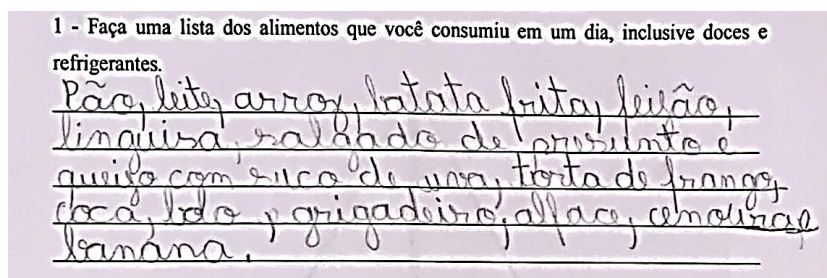 1 - Faça uma lista dos alimentos que você consumiu em um dia, inclusive doces e
refrigerantes.
Pão, leite, arroz, batata frita, feijão,
linguiza, salgado de presunto e
queijo com suco de uva, torta de frango,
coca, bolo, grigadeiro, alface, cenoura e
banana.